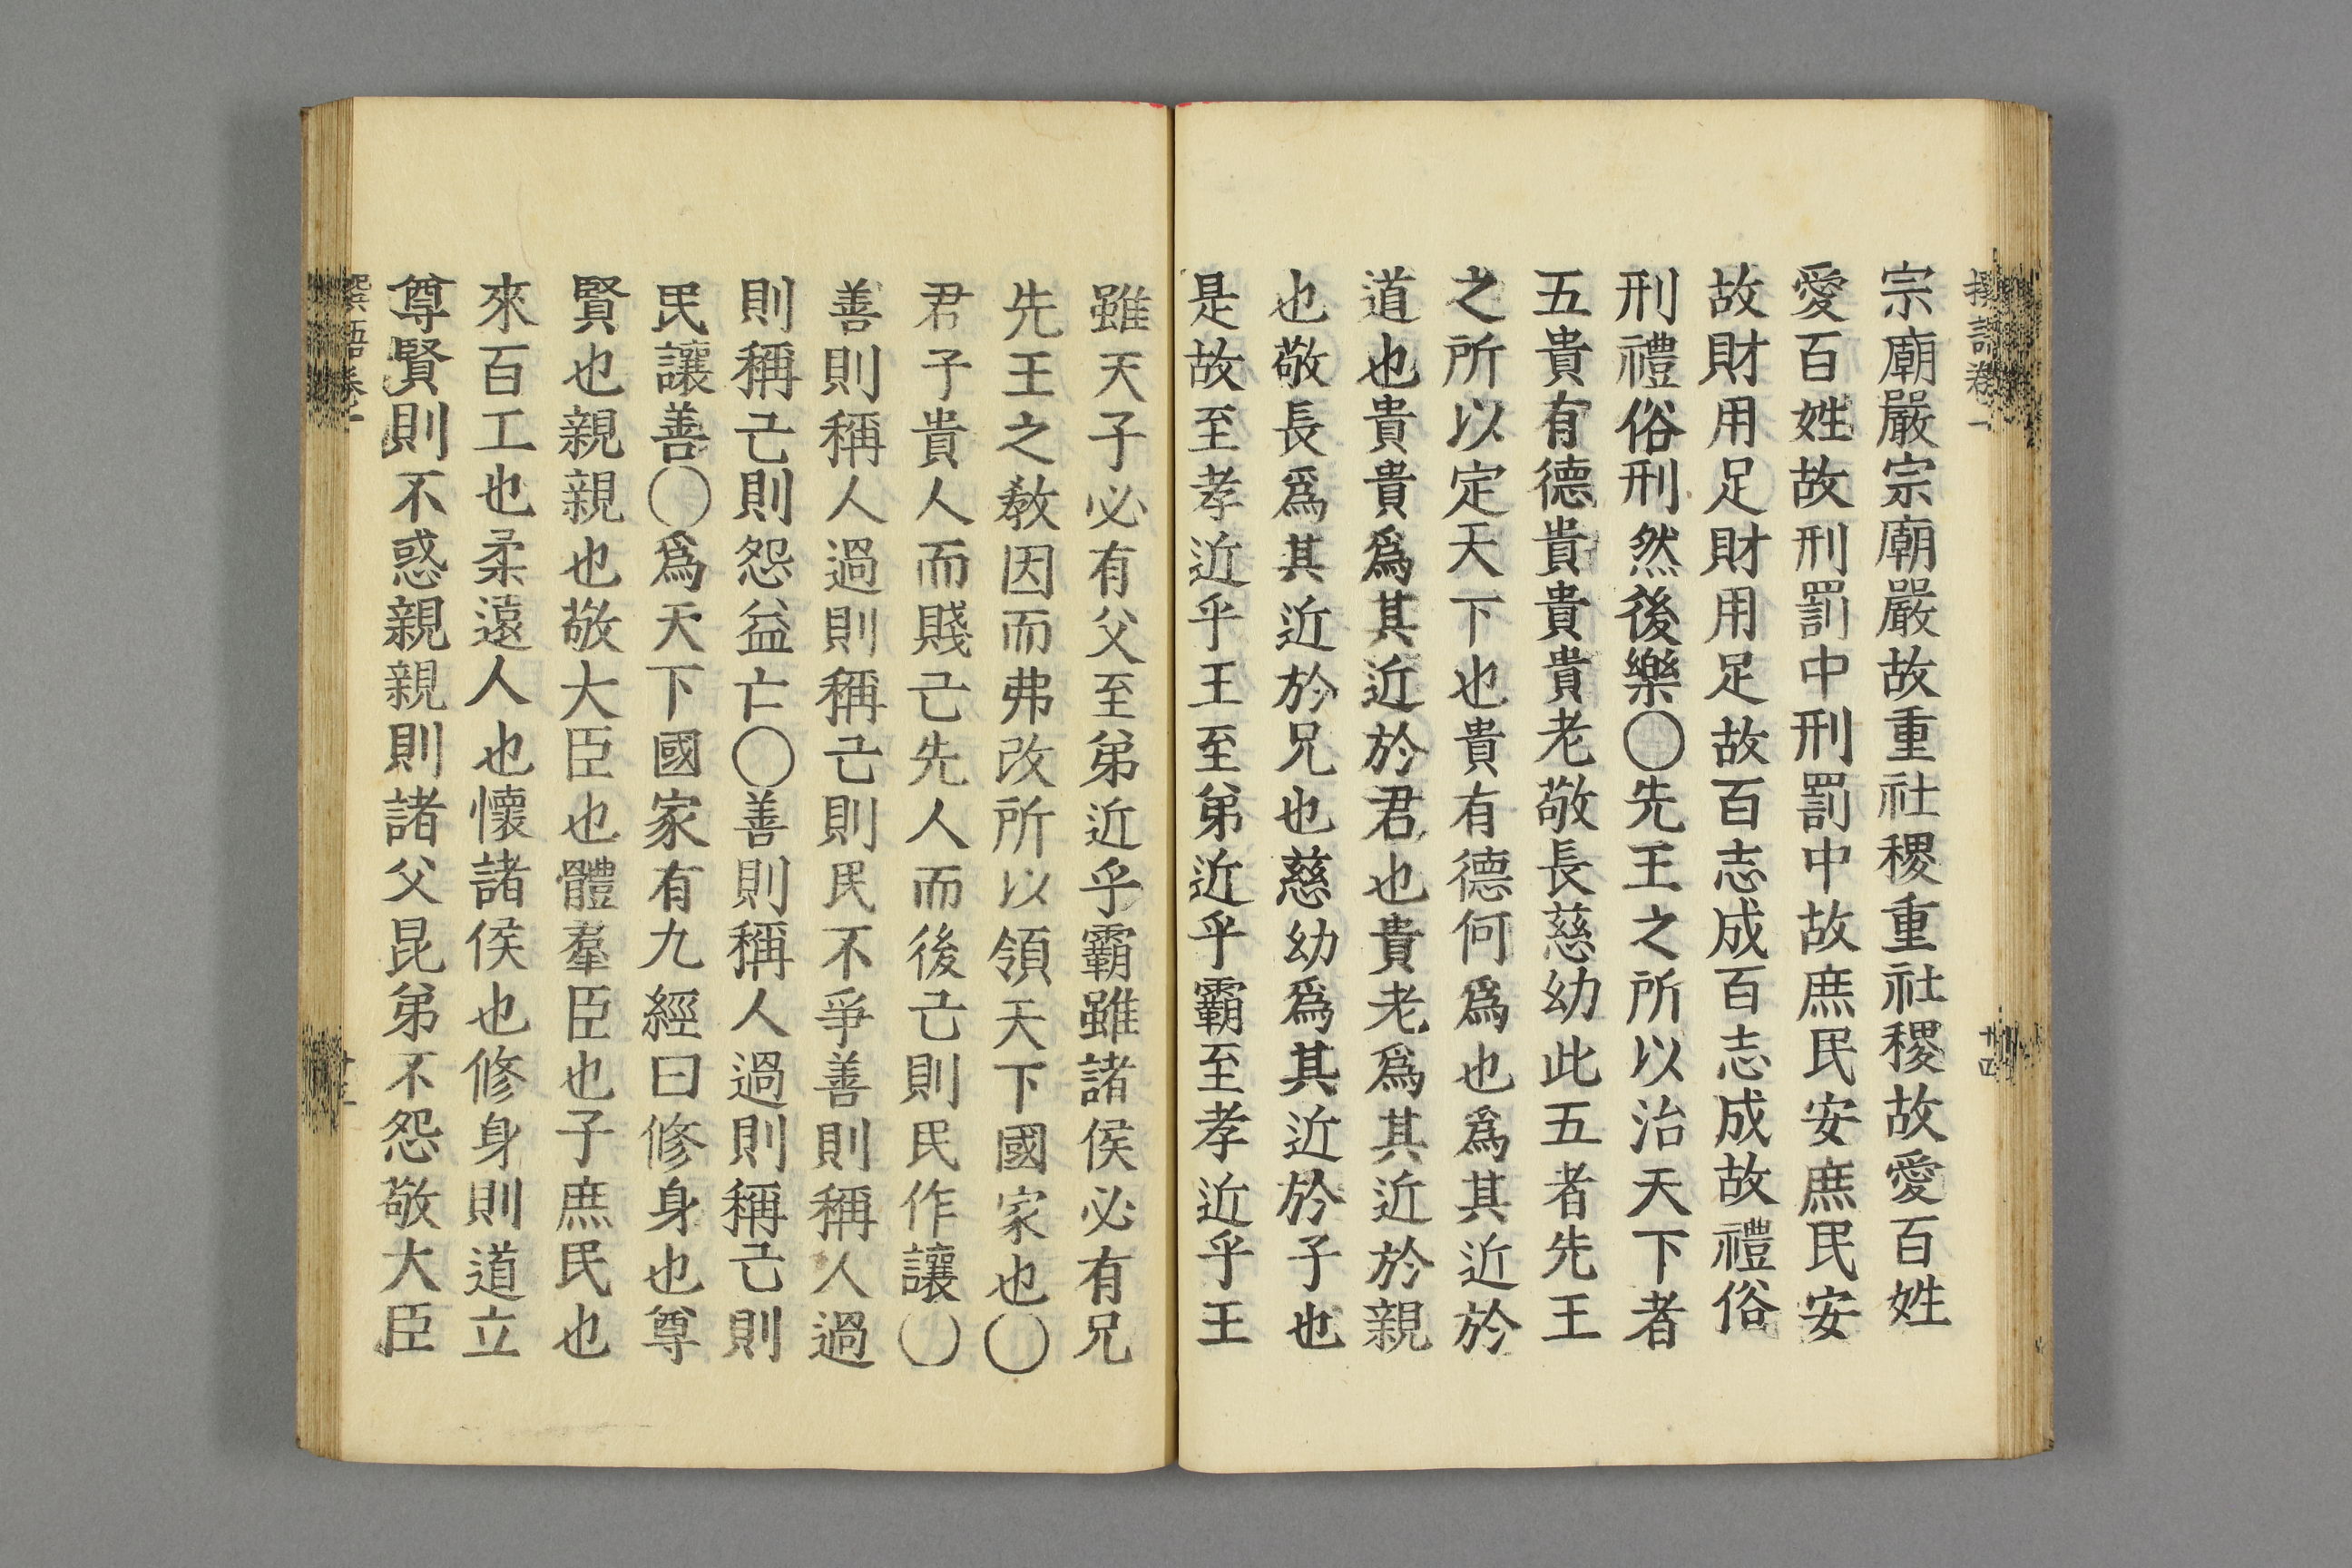 撰語卷一
十四
宗廟嚴宗廟嚴故重社稷重社稷故愛百姓
愛百姓故刑罰中刑罰中故庶民安庶民安
故財用足財用足故百志成百志成故禮俗
刑禮俗刑然後樂〇先王之所以治天下者
五貴有德貴貴貴老敬長慈幼此五者先王
之所以定天下也貴有德何爲也爲其近於
道也貴貴爲其近於君也貴老爲其近於親
也敬長爲其近於兄也慈幼爲其近於子也
是故至孝近乎王至弟近乎霸至孝近乎王
雖天子必有父至弟近乎霸雖諸侯必有兄
先王之敎因而弗改所以領天下國家也〇
君子貴人而賤己先人而後己則民作讓〇
善則稱人過則稱己則民不爭善則稱人過
則稱己則怨益亡〇善則稱人過則稱己則
民讓善〇爲天下國家有九經曰修身也尊
賢也親親也敬大臣也體羣臣也子庶民也
來百工也柔遠人也懷諸侯也修身則道立
尊賢則不惑親親則諸父昆弟不怨敬大臣
撰語卷一